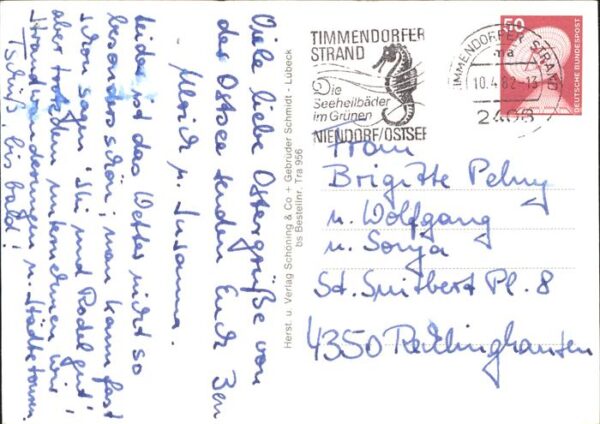 Viele liebe Ostergrüße von
der Ostsee senden Euch Zen
- Ulrich u. Susanna.
Leider ist das Wetter nicht so
besonders schön; man kann fast
schon sagen "Ski und Rodel gut"!
aber trotzdem unternehmen wir
Strandwanderungen u. Städtetouren.
Tschüß, bis bald!
Herst. u. Verlag Schöning & Co + Gebrüder Schmidt - Lübeck
bs Bestellnr. Tra 956
TIMMENDORFER
STRAND
Die
Seeheilbäder
im Grünen
NIENDORF/OSTSEE
TIMMENDORFER STRAND
10.4.82-13
2408
50
DEUTSCHE BUNDESPOST
Fam
Brigitte Pelny
u. Wolfgang
u. Sonja
St. Suitbert Pl. 8
4350 Recklinghausen